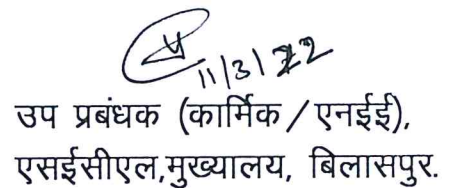 11/3/22
उप प्रबंधक (कार्मिक/एनईई),
एसईसीएल,मुख्यालय, बिलासपुर.